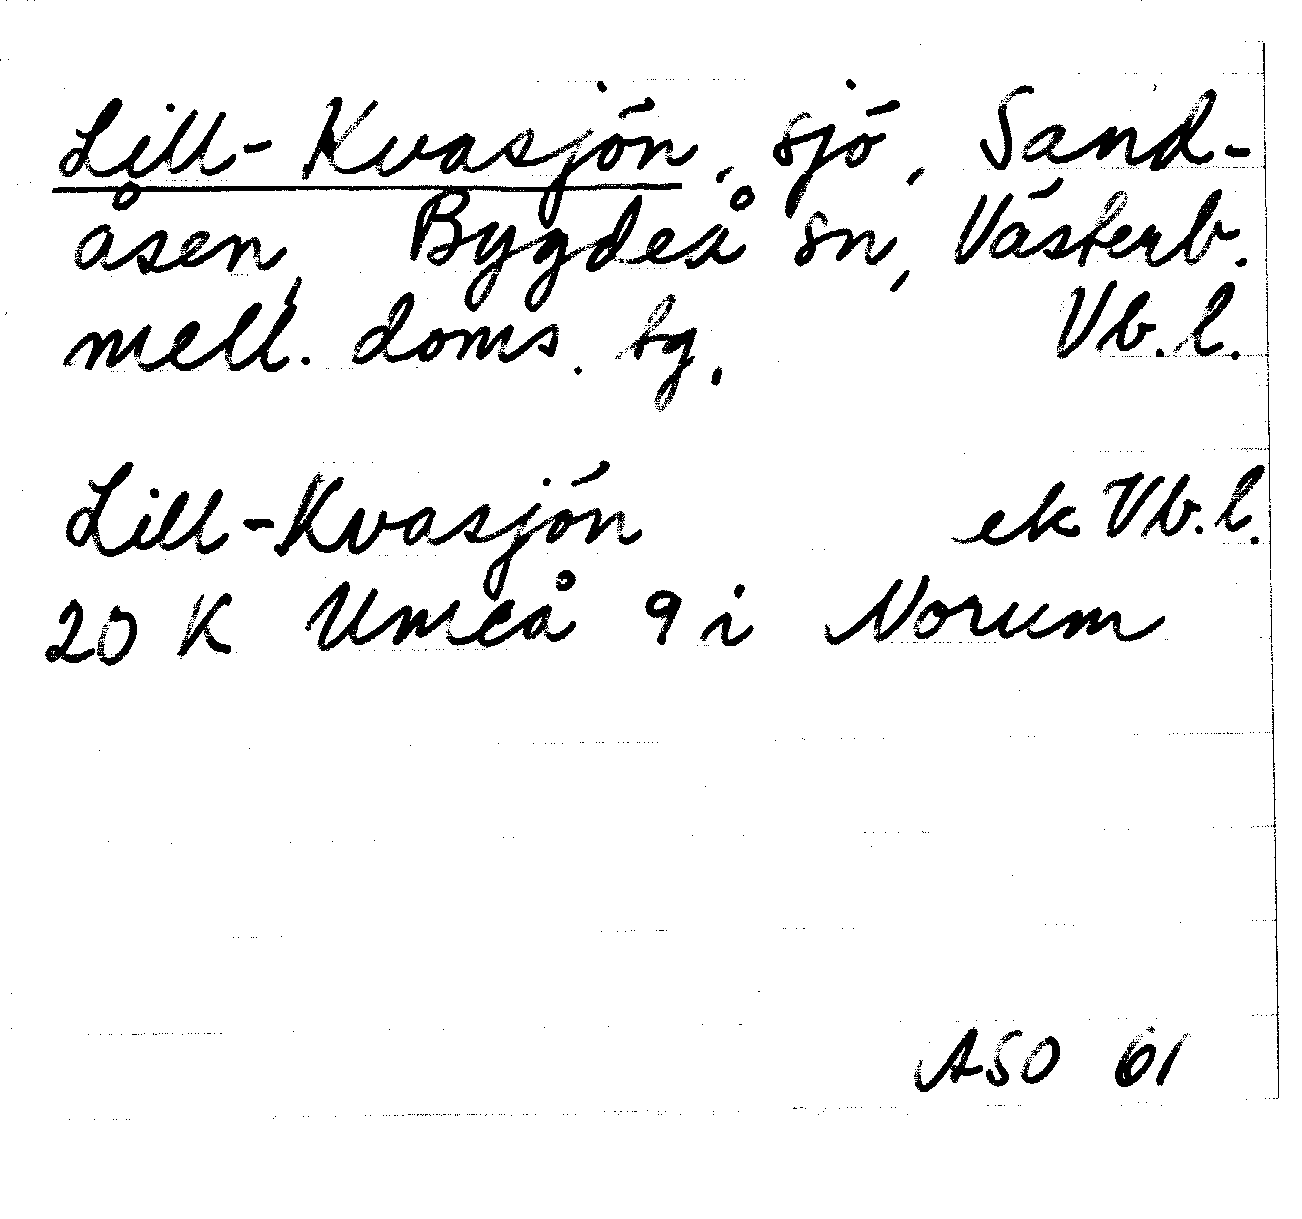 Lill-Kvasjön, sjö, Sand-
åsen, Bygdeå sn, Västerb.
mell. doms. tg. Vb.l.
Lill-Kvasjön ek Vb.l.
20 K Umeå 9 i Norum
ASO 61